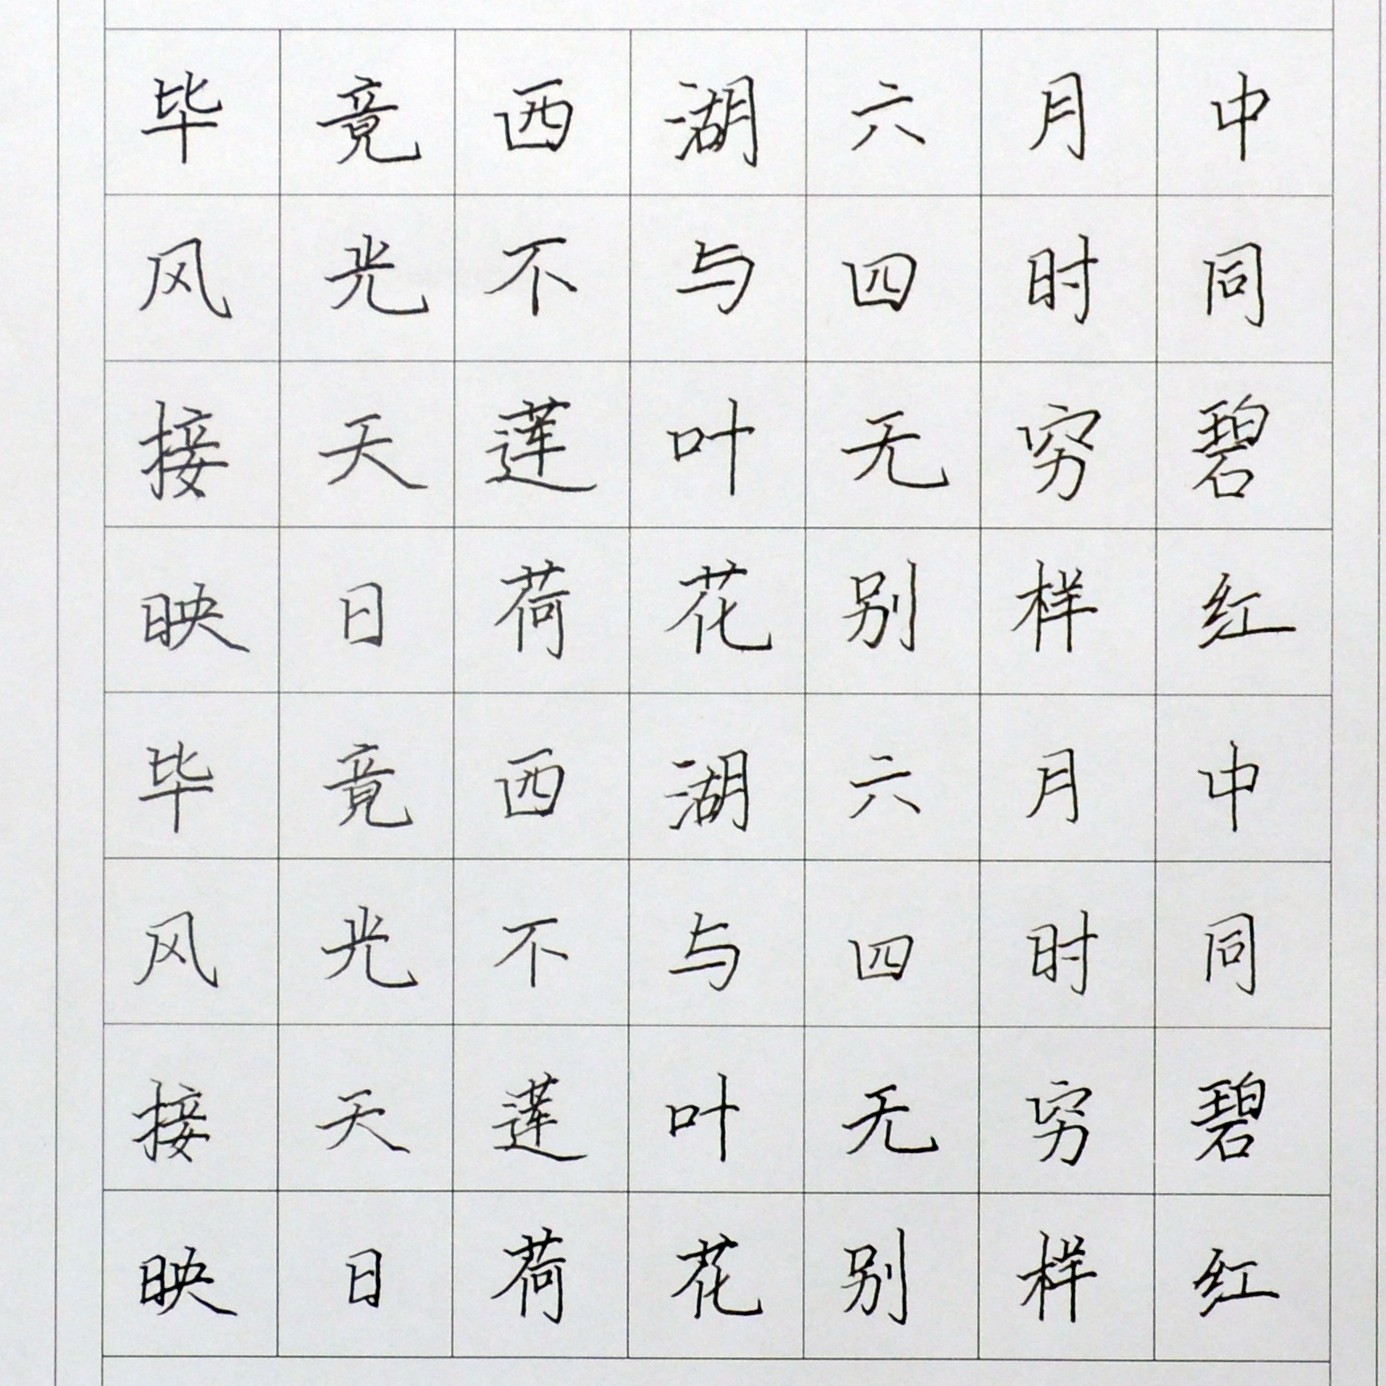 毕竟西湖六月中
风光不与四时同
接天莲叶无穷碧
映日荷花别样红
毕竟西湖六月中
风光不与四时同
接天莲叶无穷碧
映日荷花别样红